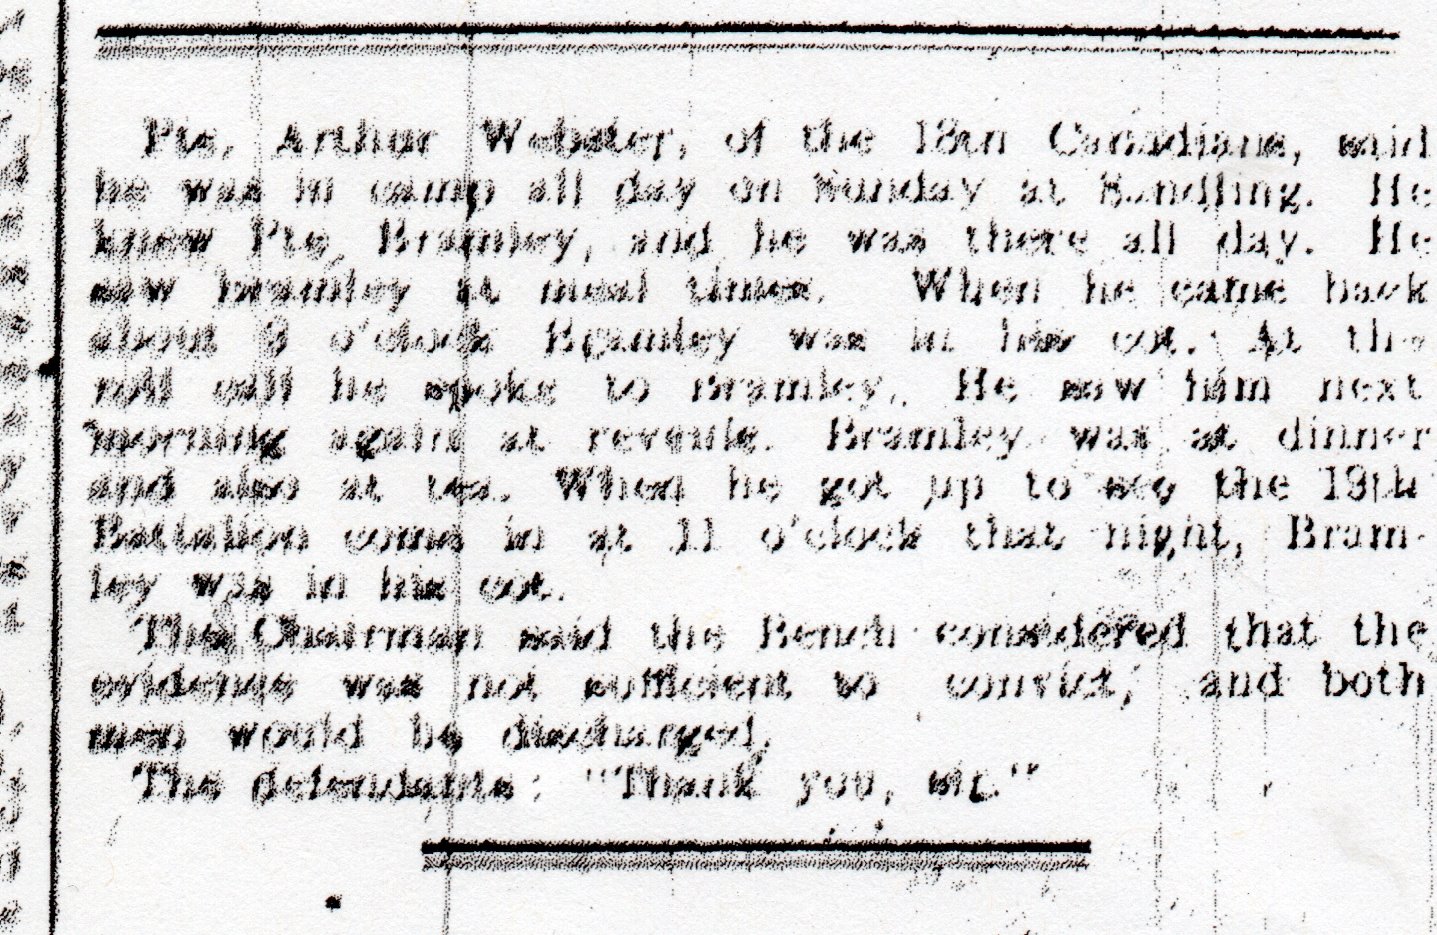 Pte. Arthur Webster, of the 18th Canadians, said
he was in camp all day on Sunday at Sandling. He
knew Pte. Bramley, and he was there all day. He
saw Bramley at meal times. When he came back
about 9 o'clock Bramley was in his cot. At the
roll call he spoke to Bramley. He saw him next
morning again at reveille. Bramley was at dinner
and also at tea. When he got up to see the 19th
Battalion come in at 11 o'clock that night, Bram-
ley was in his cot.
The Chairman said the Bench considered that the
evidence was not sufficient to convict, and both
men would be discharged.
The defendants: "Thank you, sir."